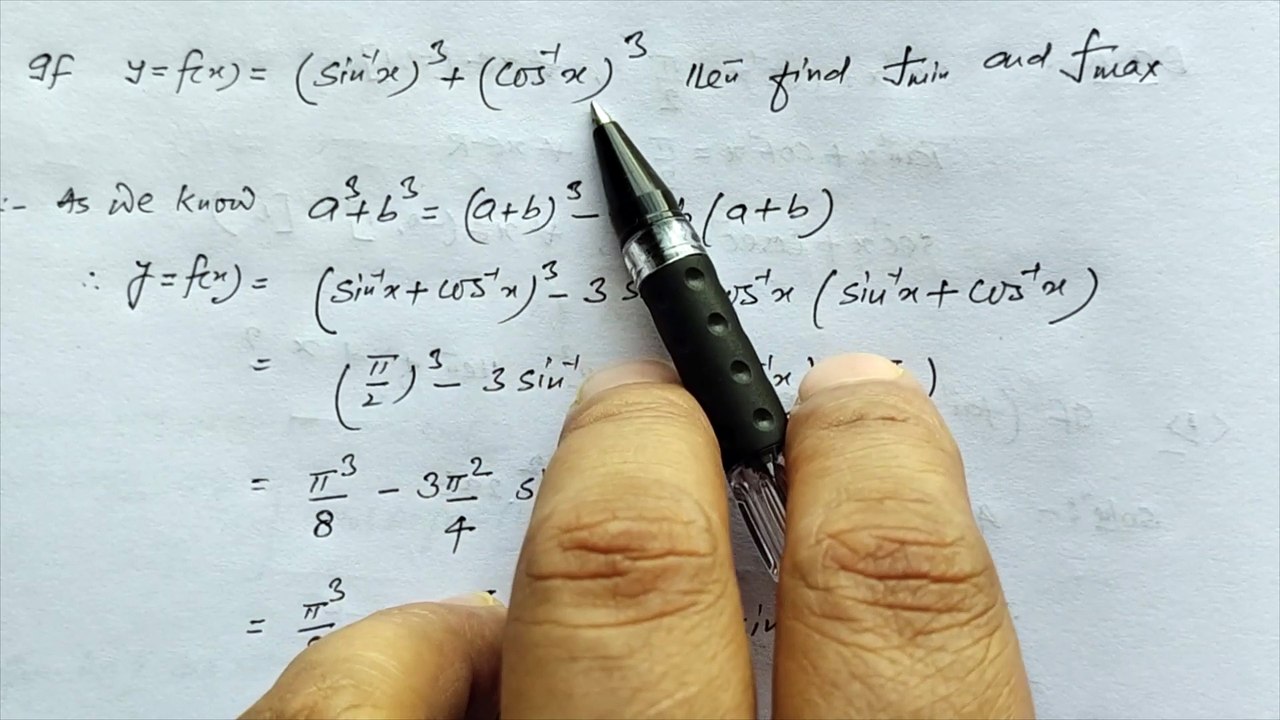 If y=f(x) = (sin⁻¹x)³ + (cos⁻¹x)³ then find fmin and fmax
:- As we know a³+b³ = (a+b)³ - b (a+b)
∴ y=f(x) = (sin⁻¹x + cos⁻¹x)³ - 3 s os⁻¹x (sin⁻¹x + cos⁻¹x)
= (π/2)³ - 3 sin⁻¹ ⁻¹x )
= π³/8 - 3π²/4 s
= π³ sin